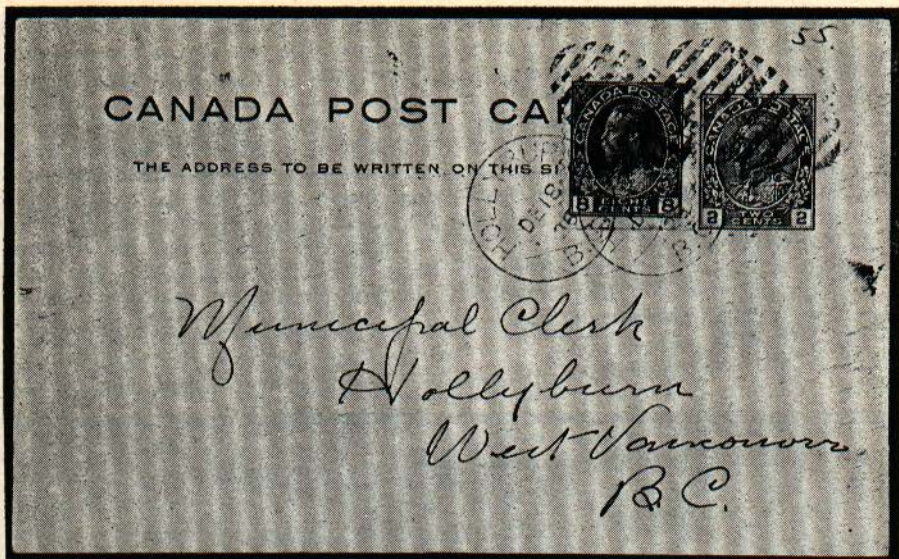 55.
CANADA POST CAR
THE ADDRESS TO BE WRITTEN ON THIS SI
CANADA POSTAGE
8 CENTS 8
CANADA POSTAGE
2 TWO CENTS 2
HOLLYBURN
DE 18
B.C.
Municipal Clerk
Hollyburn
West Vancouver
B.C.